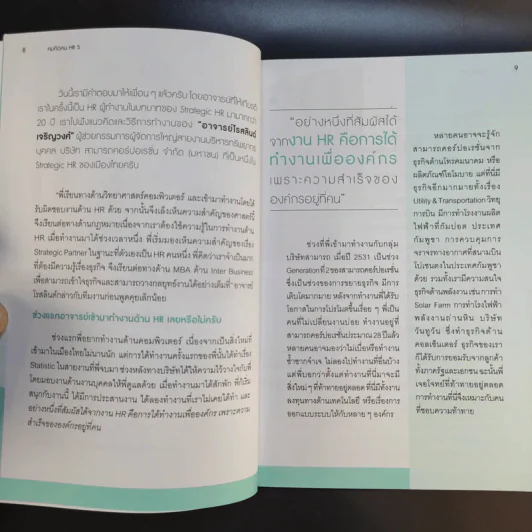 8 คนคิดคน HR 5
วันนี้เรามีคำตอบมาให้เพื่อน ๆ แล้วครับ โดยอาจารย์ที่ให้เกียรติ
เราในครั้งนี้เป็น HR ผู้ทำงานในบทบาทของ Strategic HR มามากกว่า
20 ปี เราไปฟังแนวคิดและวิธีการทำงานของ "อาจารย์โรสลินด์
เจริญวงค์" ผู้ช่วยกรรมการผู้จัดการใหญ่สายงานบริหารทรัพยากร
บุคคล บริษัท สามารถคอร์ปอเรชั่น จำกัด (มหาชน) ที่เป็นหนึ่งใน
Strategic HR ของเมืองไทยครับ
"พี่เรียนทางด้านวิทยาศาสตร์คอมพิวเตอร์ และเข้ามาทำงานโดยได้
รับผิดชอบงานด้าน HR ด้วย จากนั้นจึงเล็งเห็นความสำคัญของศาสตร์นี้
จึงเรียนต่อทางด้านกฎหมายเนื่องจากเราต้องใช้ความรู้ในการทำงานด้าน
HR เมื่อทำงานมาได้ช่วงเวลาหนึ่ง พี่เริ่มมองเห็นความสำคัญของเรื่อง
Strategic Partner ในฐานะที่ตัวเองเป็น HR คนหนึ่ง พี่คิดว่าเราจำเป็นมาก
ที่ต้องมีความรู้เรื่องธุรกิจ จึงเรียนต่อทางด้าน MBA ด้าน Inter Business
เพื่อสามารถเข้าใจธุรกิจและสามารถวางกลยุทธ์งานได้อย่างเต็มที่" อาจารย์
โรสลินด์กล่าวกับทีมงานก่อนพูดคุยเล็กน้อย
ช่วงแรกอาจารย์เข้ามาทำงานด้าน HR เลยหรือไม่ครับ
ช่วงแรกพี่อยากทำงานด้านคอมพิวเตอร์ เนื่องจากเป็นสิ่งใหม่ที่
เข้ามาในเมืองไทยไม่นานนัก แต่การได้ทำงานครั้งแรกของพี่นั้นได้ทำเรื่อง
Statistic ในสายงานที่พี่จบมา ช่วงหลังทางบริษัทได้ให้ความไว้วางใจกับพี่
โดยมอบงานด้านงานบุคคลให้พี่ดูแลด้วย เมื่อทำงานมาได้สักพัก พี่ก็เริ่ม
สนุกกับงานนี้ ได้มีการประสานงาน ได้ลองทำงานที่เราไม่เคยได้ทำ และ
อย่างหนึ่งที่สัมผัสได้จากงาน HR คือการได้ทำงานเพื่อองค์กร เพราะความ
สำเร็จขององค์กรอยู่ที่คน
9
"อย่างหนึ่งที่สัมผัสได้
จากงาน HR คือการได้
ทำงานเพื่อองค์กร
เพราะความสำเร็จของ
องค์กรอยู่ที่คน"
ช่วงที่พี่เข้ามาทำงานกับกลุ่ม
บริษัทสามารถ เมื่อปี 2531 เป็นช่วง
Generation ที่ 2 ของสามารถคอร์ปอเรชั่น
ซึ่งเป็นช่วงของการขยายธุรกิจ มีการ
เติบโตมากมาย หลังจากทำงานพี่ได้รับ
โอกาสในการโปรโมตขึ้นเรื่อย ๆ พี่เป็น
คนที่ไม่เปลี่ยนงานบ่อย ทำงานอยู่ที่
สามารถคอร์ปอเรชั่นประมาณ 25 ปีแล้ว
หลายคนอาจมองว่าไม่เบื่อหรือทำงาน
ซ้ำซากจำเจ ไม่ลองไปทำงานที่อื่นบ้าง
แต่พี่บอกว่าตั้งแต่ทำงานที่นี่มาจะมี
สิ่งใหม่ๆ ที่ท้าทายอยู่ตลอด ที่นี่มีทั้งงาน
ลงทุนทางด้านเทคโนโลยี หรือเรื่องการ
ออกแบบระบบให้กับหลาย ๆ องค์กร
หลายคนอาจจะรู้จัก
สามารถคอร์ปอเรชั่นจาก
ธุรกิจด้านโทรคมนาคม หรือ
ผลิตภัณฑ์ไอโมบาย แต่ที่นี่มี
ธุรกิจอีกมากมายทั้งเรื่อง
Utility & Transportation วิทยุ
การบิน มีการทำโรงงานผลิต
ไฟฟ้าที่กัมปอต ประเทศ
กัมพูชา การควบคุมการ
จราจรทางอากาศที่สนามบิน
โปเชนตงในประเทศกัมพูชา
ด้วย รวมทั้งเรามีความสนใจ
ธุรกิจด้านพลังงาน เช่น การทำ
Solar Farm การทำโรงไฟฟ้า
พลังงานถ่านหิน บริษัท
วันทูวัน ซึ่งทำธุรกิจด้าน
คอลเซ็นเตอร์ของเรา
ก็ได้รับการยอมรับจากลูกค้า
ทั้งภาครัฐและเอกชน ฉะนั้นพี่
เจอโจทย์ที่ท้าทายอยู่ตลอด
การทำงานที่นี่จึงเหมาะกับคน
ที่ชอบความท้าทาย